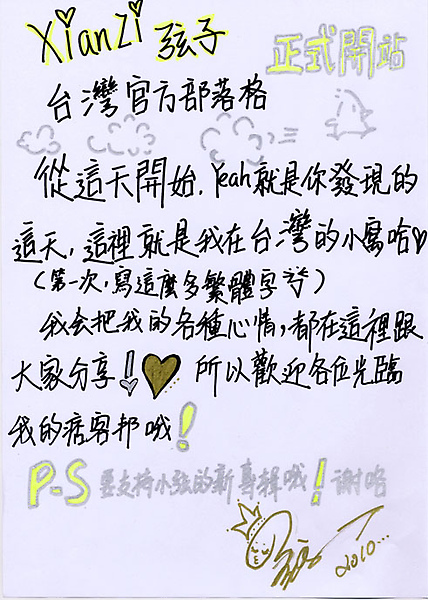 Xianzi 弦子
正式開站
台灣官方部落格
從這天開始，Yeah就是你發現的
這天，這裡就是我在台灣的小窩哈♡
（第一次，寫這麼多繁體字）
我会把我的各種心情，都在這裡跟
大家分享！♡♥ 所以歡迎各位光臨
我的痞客邦哦！
P-S 要支持小弦的新專輯哦！謝咯
弦子 2010...